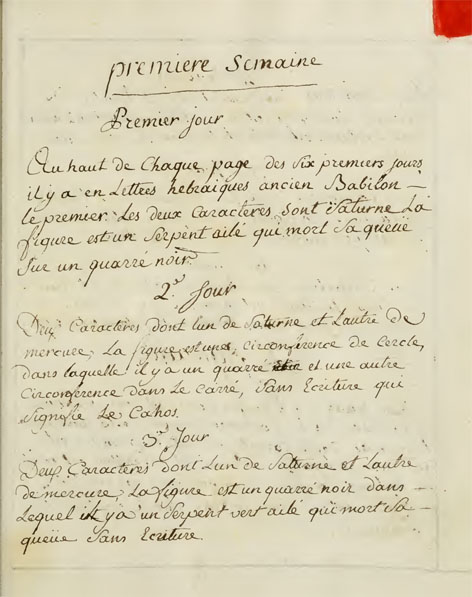 premiere Semaine
Premier jour
Au haut de Chaque page des Six premiers jours
il y a en Lettres hebraiques ancien Babilon –
le premier. Les deux Caracteres Sont Saturne La
figure est un Serpent ailé qui mort Sa queüe
Sur un quarré noir.
2.e Jour
Deux Caracteres dont lun de Saturne et Lautre de
mercure, La figure est une circonférence de Cercle,
dans laquelle il y a un quarré et une autre
Circonférence dans Le Carré, Sans Ecriture qui
Signifie Le Cahos.
3.e Jour
Deux Caracteres dont Lun de Saturne et Lautre
de mercure, La figure est un quarré noir dans –
Lequel il y a un Serpent vert ailé qui mort Sa –
queüe Sans Ecriture.